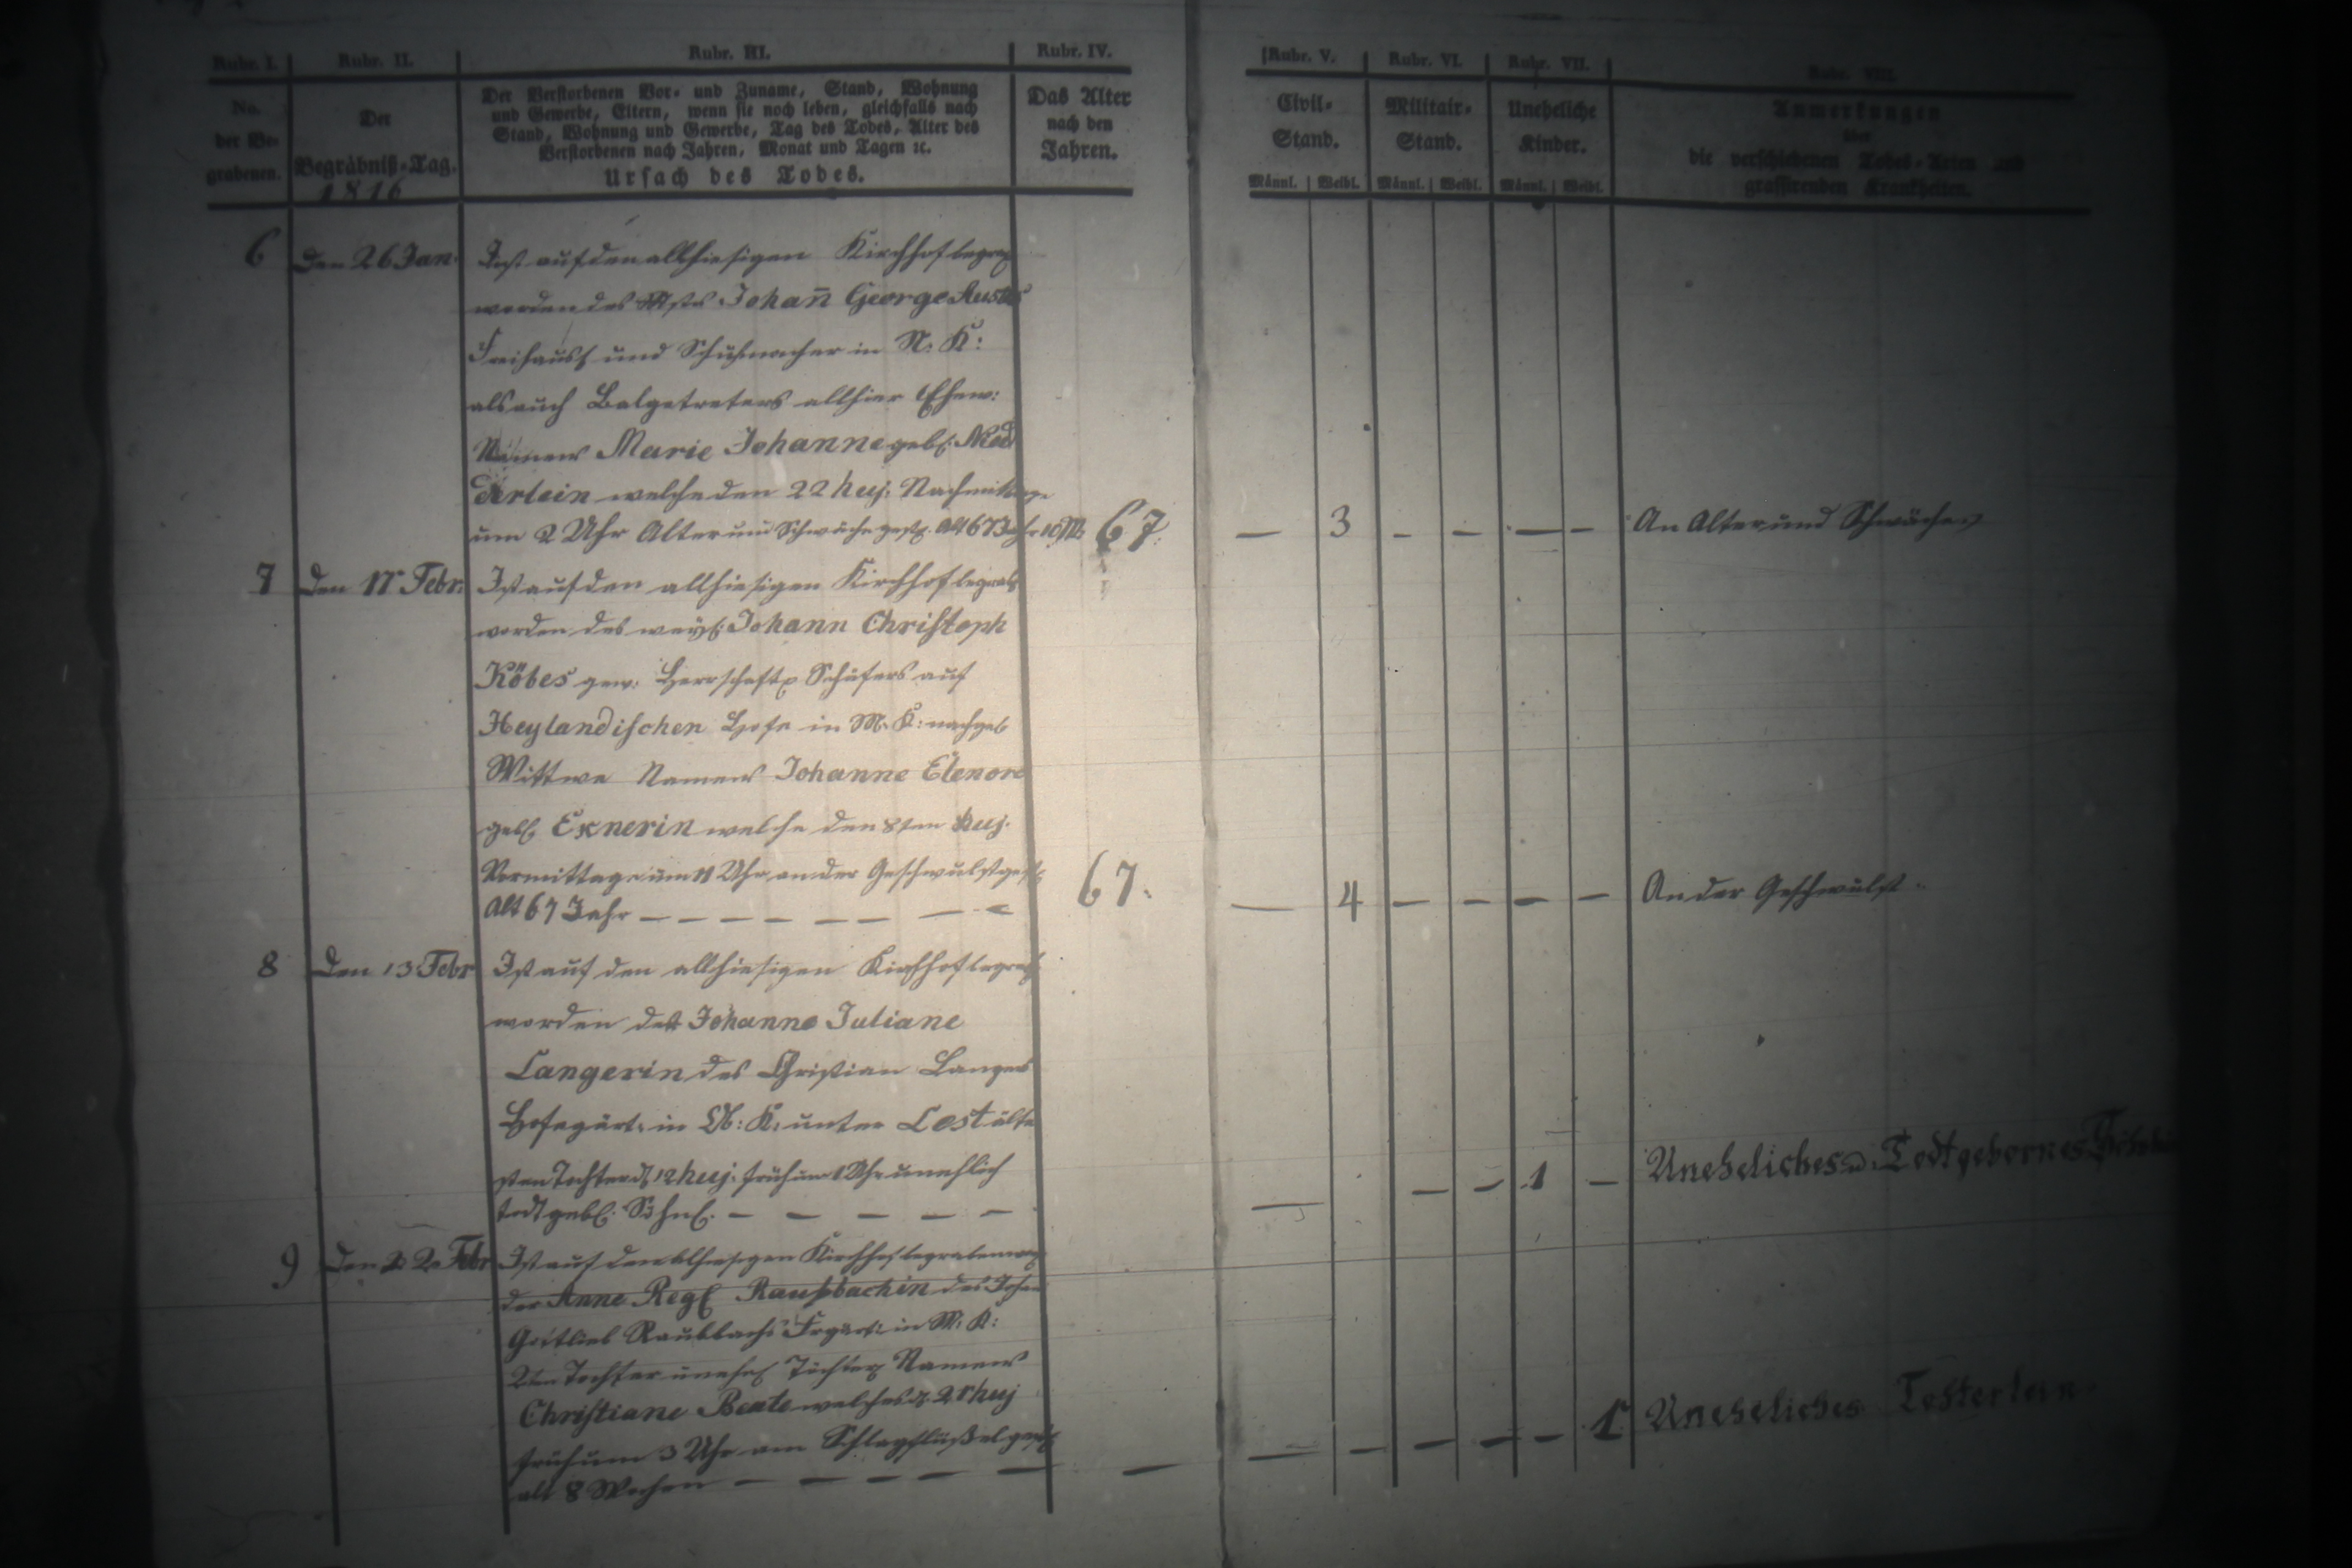 Rubr. I. Rubr. II. Rubr. III. Rubr. IV. Rubr. V. Rubr. VI. Rubr. VII. Rubr. VIII.
No. der Be- grabenen.
Der Begräbniß-Tag.
1816
Der Verstorbenen Vor- und Zuname, Stand, Wohnung
und Gewerbe, Eltern, wenn sie noch leben, gleichfalls nach
Stand, Wohnung und Gewerbe, Tag des Todes, Alter des
Verstorbenen nach Jahren, Monat und Tagen ꝛc.
Ursach des Todes.
Das Alter
nach den
Jahren.
Civil-
Stand.
Männl. Weibl.
Militair-
Stand.
Männl. Weibl.
Uneheliche
Kinder.
Männl. Weibl.
Anmerkungen
über
die verschiedenen Todes-Arten und
grassirenden Krankheiten.
6 Den 26 Jan. Ist auf den allhiesigen Kirchhof
worden des Johan̄ George
und Schuhmacher in N. K:
als auch Balgetreters allhier Ehew:
Namens Marie Johanne geb.
welche den 22 huj. Nachmittage
um 2 Uhr Alter und Schwäche gest. Alt 67 Jahr 10 M. 67. — 3 — — — — An Alter und Schwäche
7 Den 11 Febr. Ist auf den allhiesigen Kirchhof
worden des Johann Christoph
Köbes gew. Herrschaftl. Schäfers auf
Heylandischen Hofe in M. K:
Wittwe Namens Johanne Elenore
geb. Exnerin welche den 8ten huj.
Vormittage um 11 Uhr an der Geschwulst gest.
Alt 67 Jahr — — — — — — — 67. — 4 — — — — An der Geschwulst.
8 Den 13 Febr Ist auf den allhiesigen Kirchhof
worden der Johanne Juliane
Langerin des Christian Langers
Hofegärt. in K. unter Lost älte
sten Tochter d. 12 huj. früh um 1 Uhr unehlich
todtgeb. — — — — — — — — 1 — Uneheliches Todtgebornes
9 Den 22 Febr Ist auf den allhiesigen Kirchhof begraben
der Anne Reg. Raupbachin des
Gottlieb Raubbachs in M. K:
2ten Tochter Namens
Christiane Beate welches d. 21 huj
früh um 3 Uhr am gest.
alt 8 Wochen — — — — — — — — — — — 1 Uneheliches Tochterlein